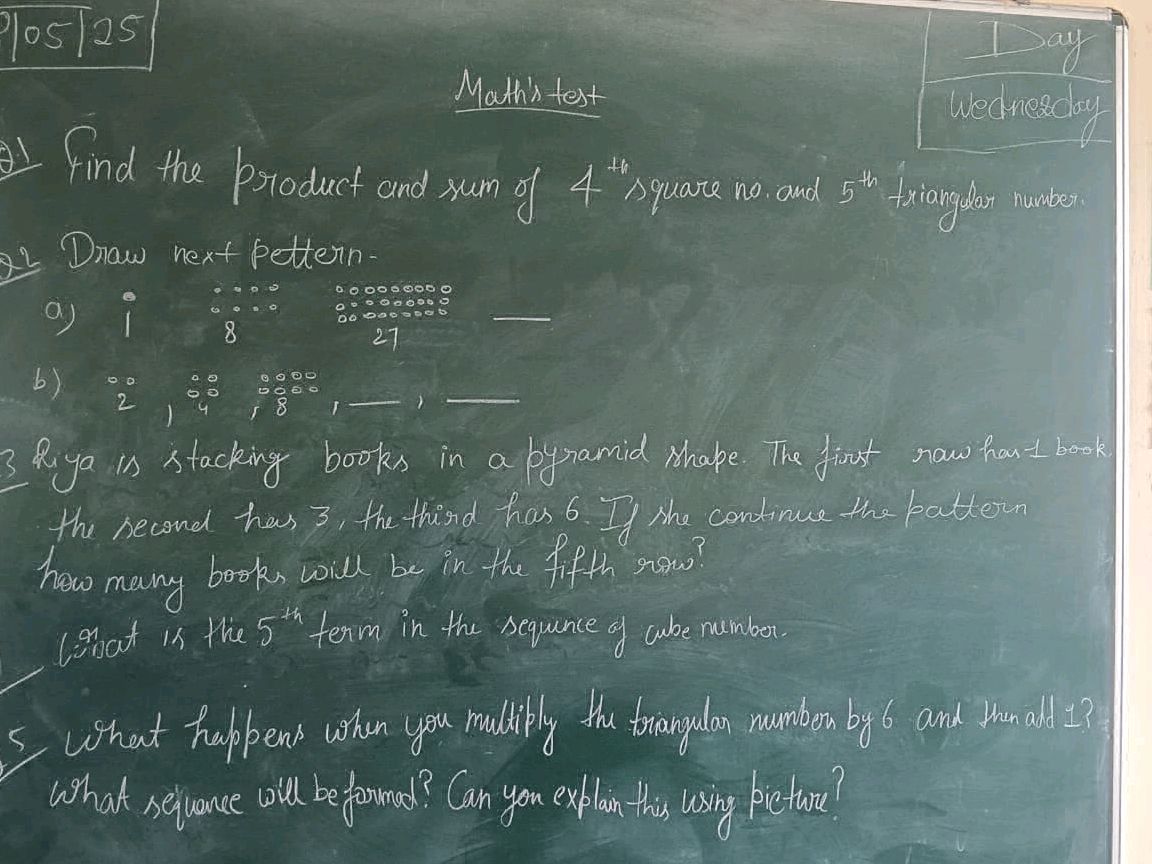 /05/25
Day
Wednesday
Math's test
Q.1 Find the product and sum of 4th square no. and 5th triangular number.
Q2 Draw next pettern-
a) 1 8 27 ___
b) 2, 4, 8, ___, ___
3 Riya is stacking books in a pyramid shape. The first row has 1 book
the second has 3, the third has 6. If she continue the pattern
how many books will be in the fifth row?
What is the 5th term in the sequence of cube number.
5 What happens when you multiply the triangular numbers by 6 and then add 1?
What sequance will be formed? Can you explain this using picture?